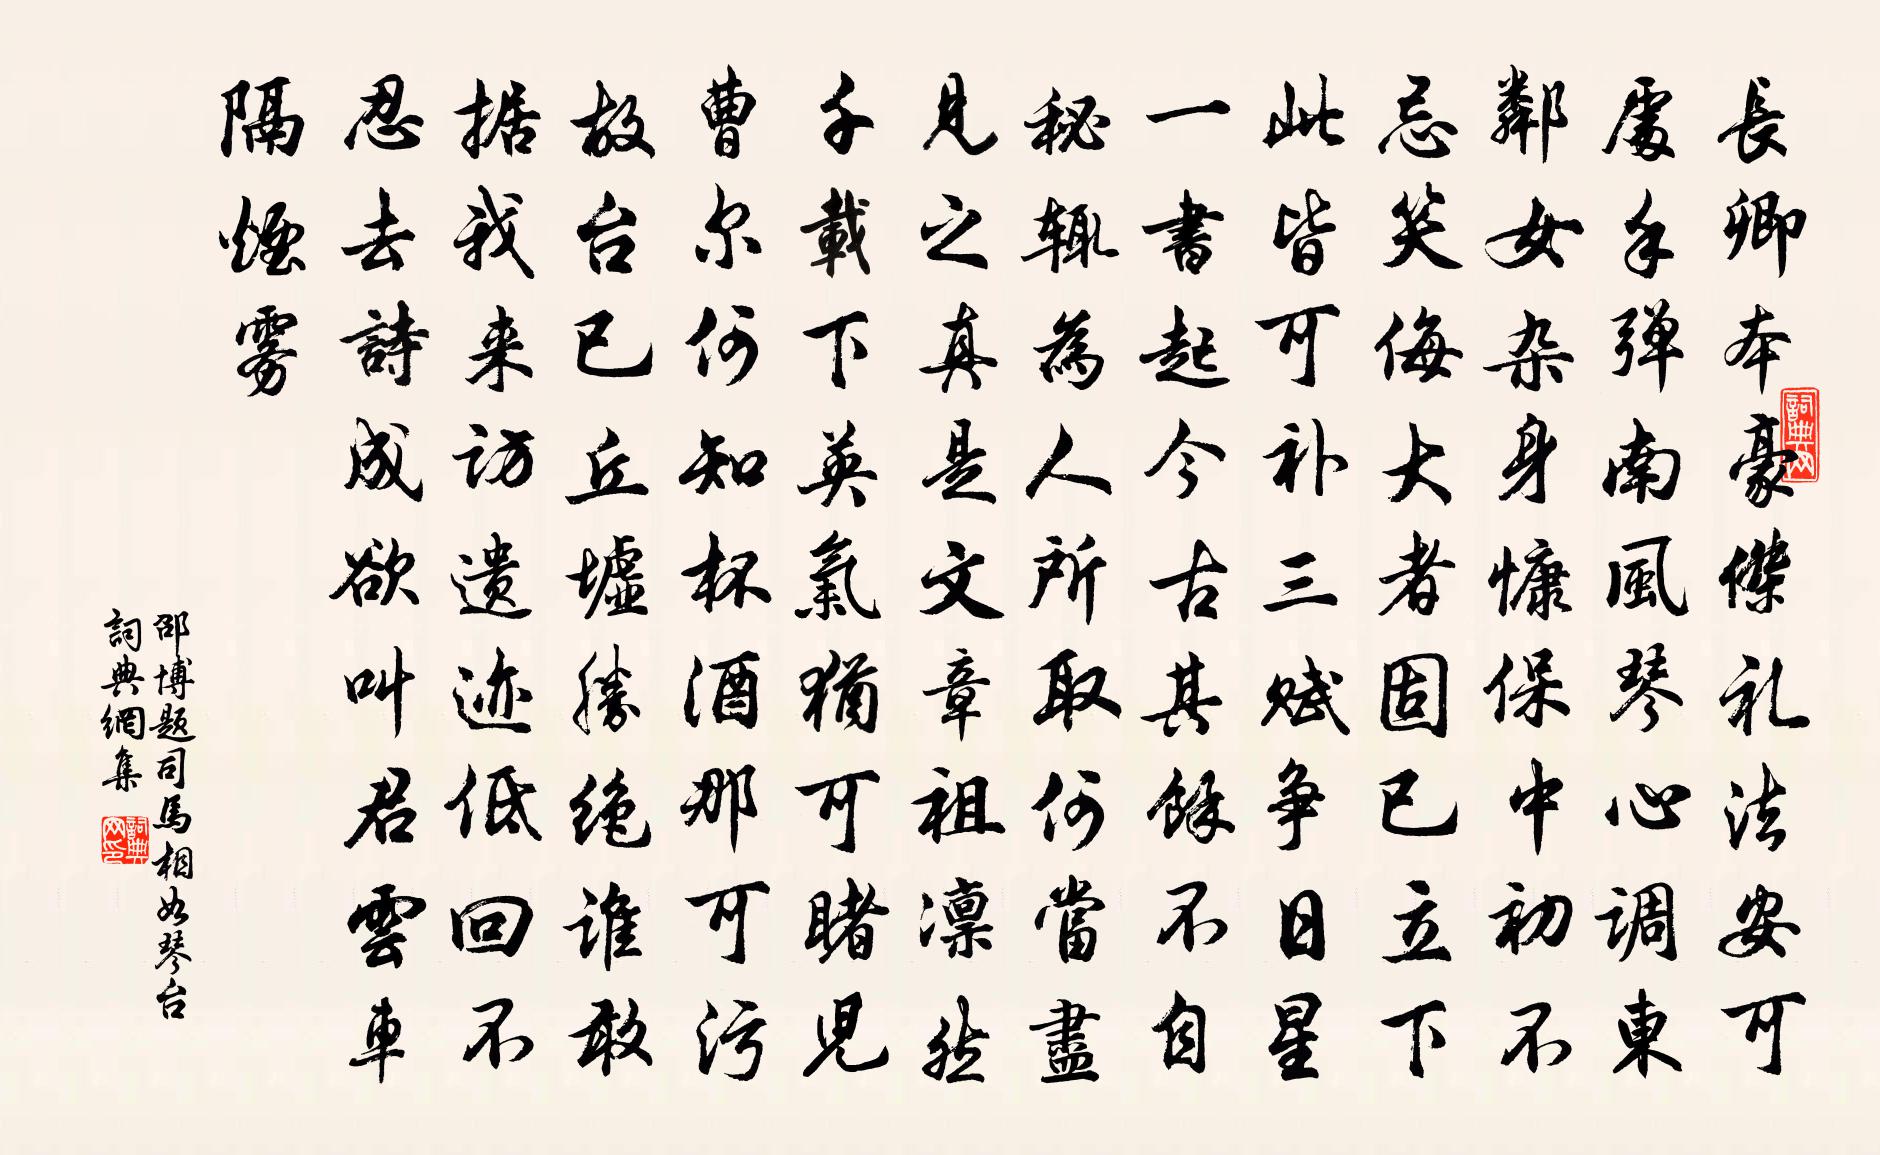 長卿本豪傑礼法安可
處手弹南風琴心调東
鄰女杂身慵保中初不
忌笑侮大者固已立下
此皆可补三赋争日星
一書起今古其餘不自
秘辄為人所取何當盡
見之真是文章祖凛然
千載下英氣猶可睹児
曹尔何知杯酒那可污
故台已丘墟勝绝谁敢
据我来访遗迹低回不
忍去詩成欲叫君雲車
隔煙雾
邵博题司馬相如琴台
詞典網集
詞典网
詞典网印